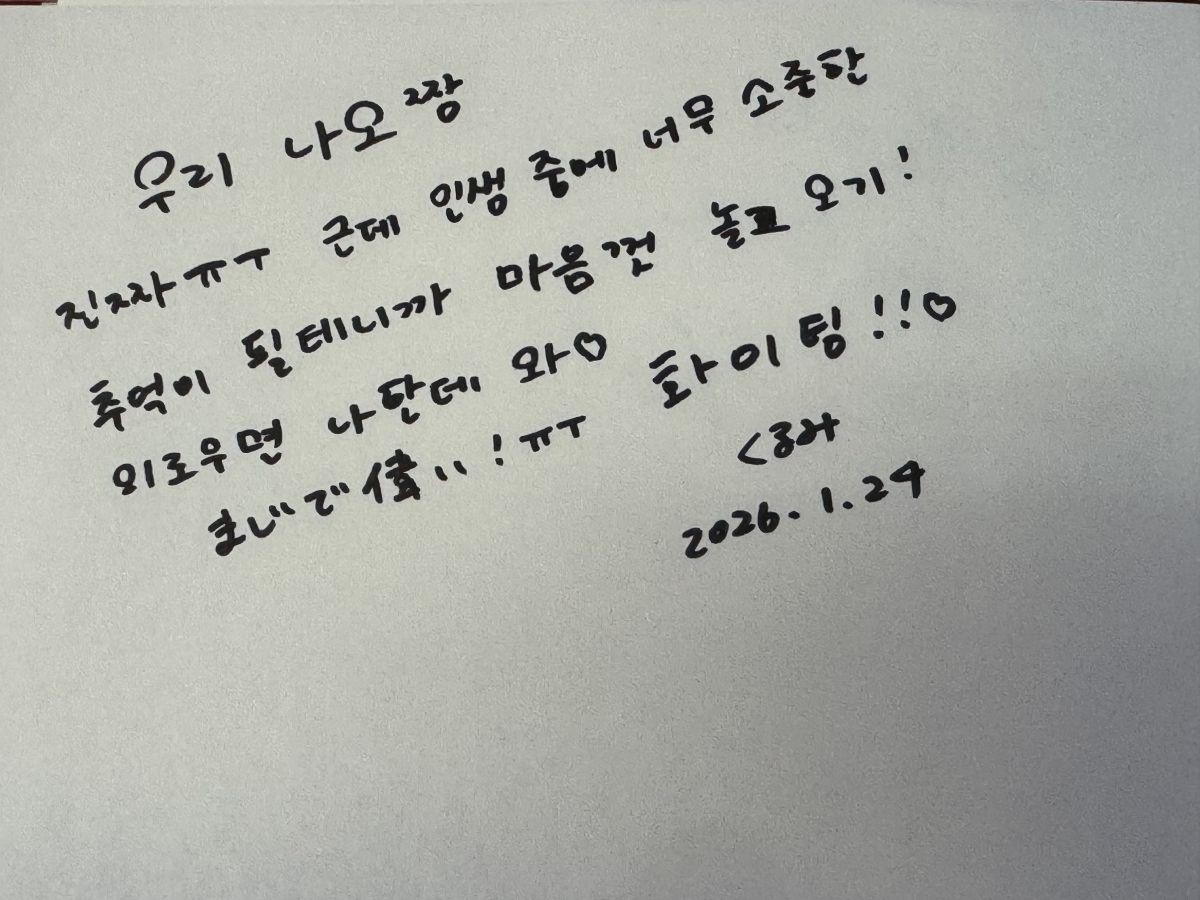 우리 나오짱
진짜ㅠㅜ 근데 인생 중에 너무 소중한
추억이 될테니까 마음껏 놀고 오기!
외로우면 나한테 와♡ 화이팅!!♡
まじで偉い!ㅠㅜ
2026.1.24